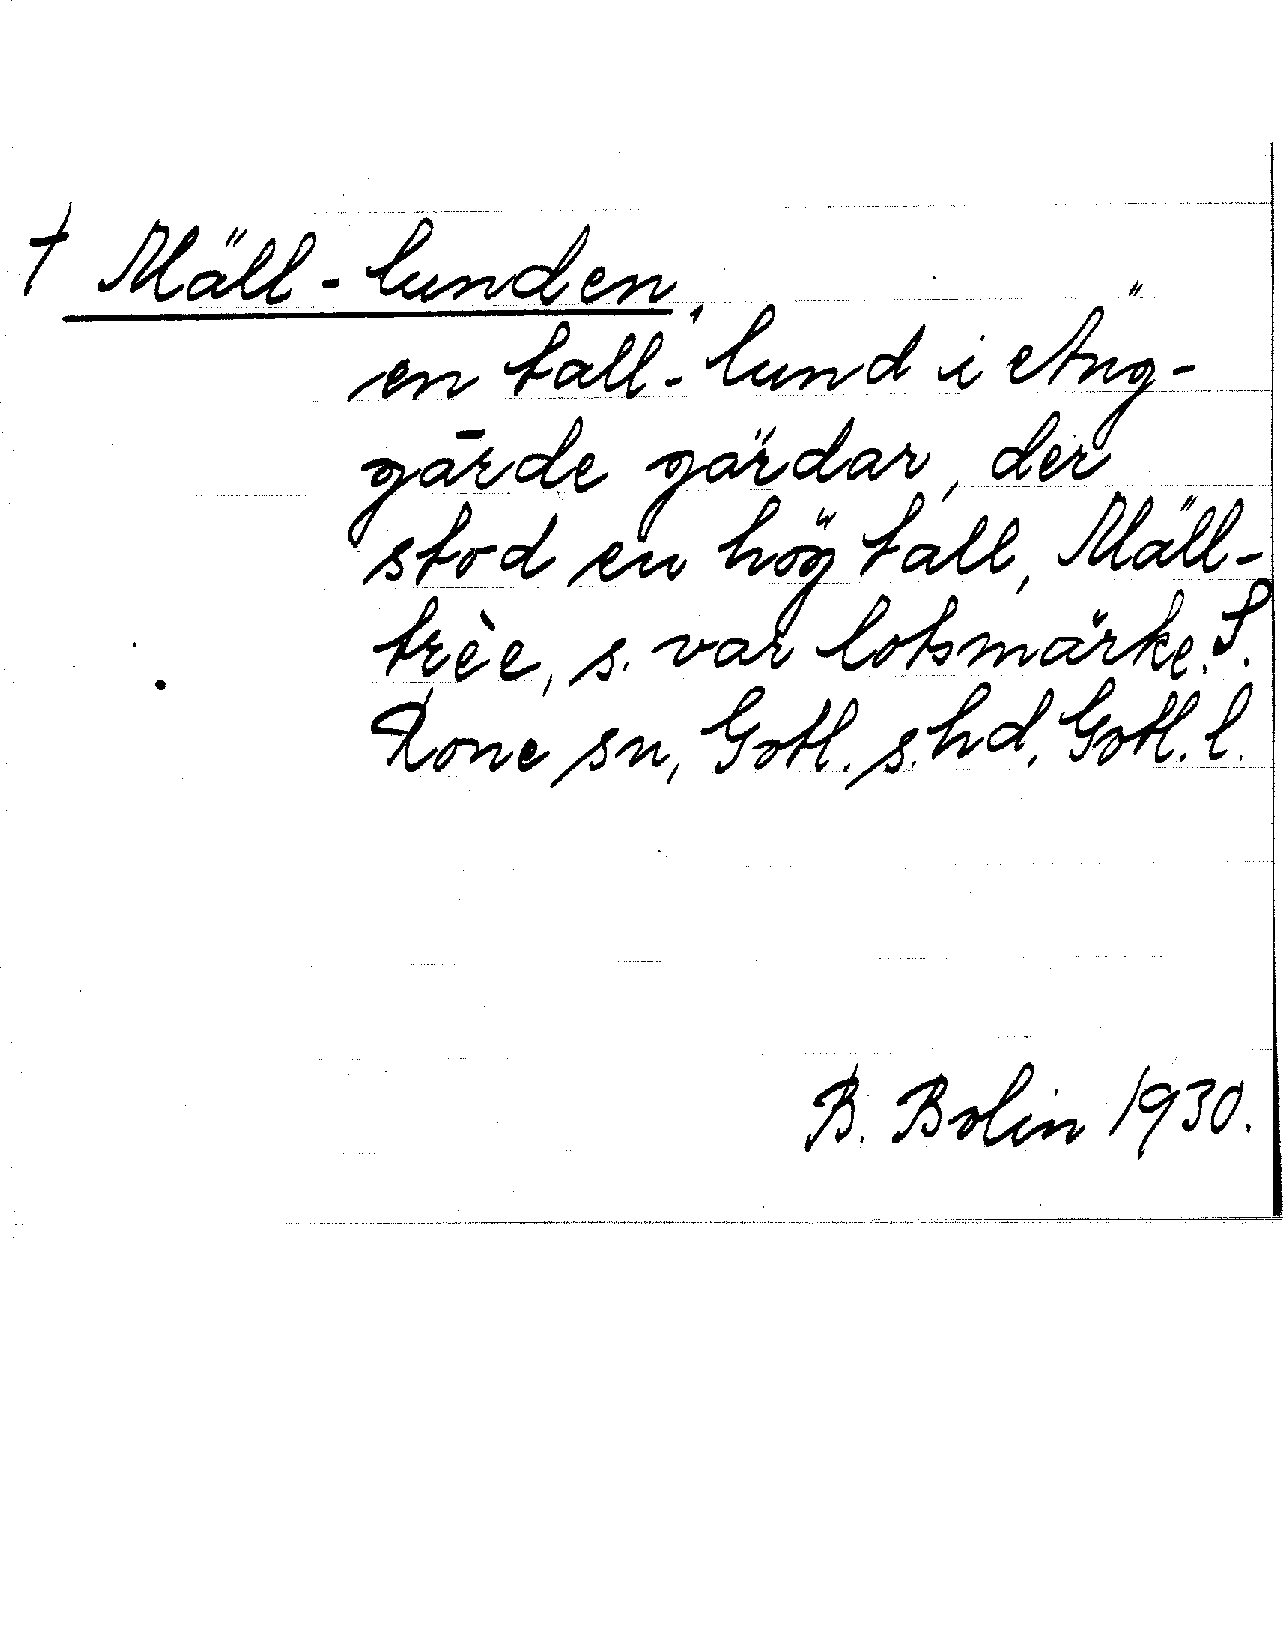 † Mäll-lunden,
en tall-lund i Äng-
gārde gärdar, der
stod en hög tall, Mäll-
trèe, s. var lotsmärke. S.
Rone sn, Gotl. s. hd, Gotl. l.
B. Bolin 1930.